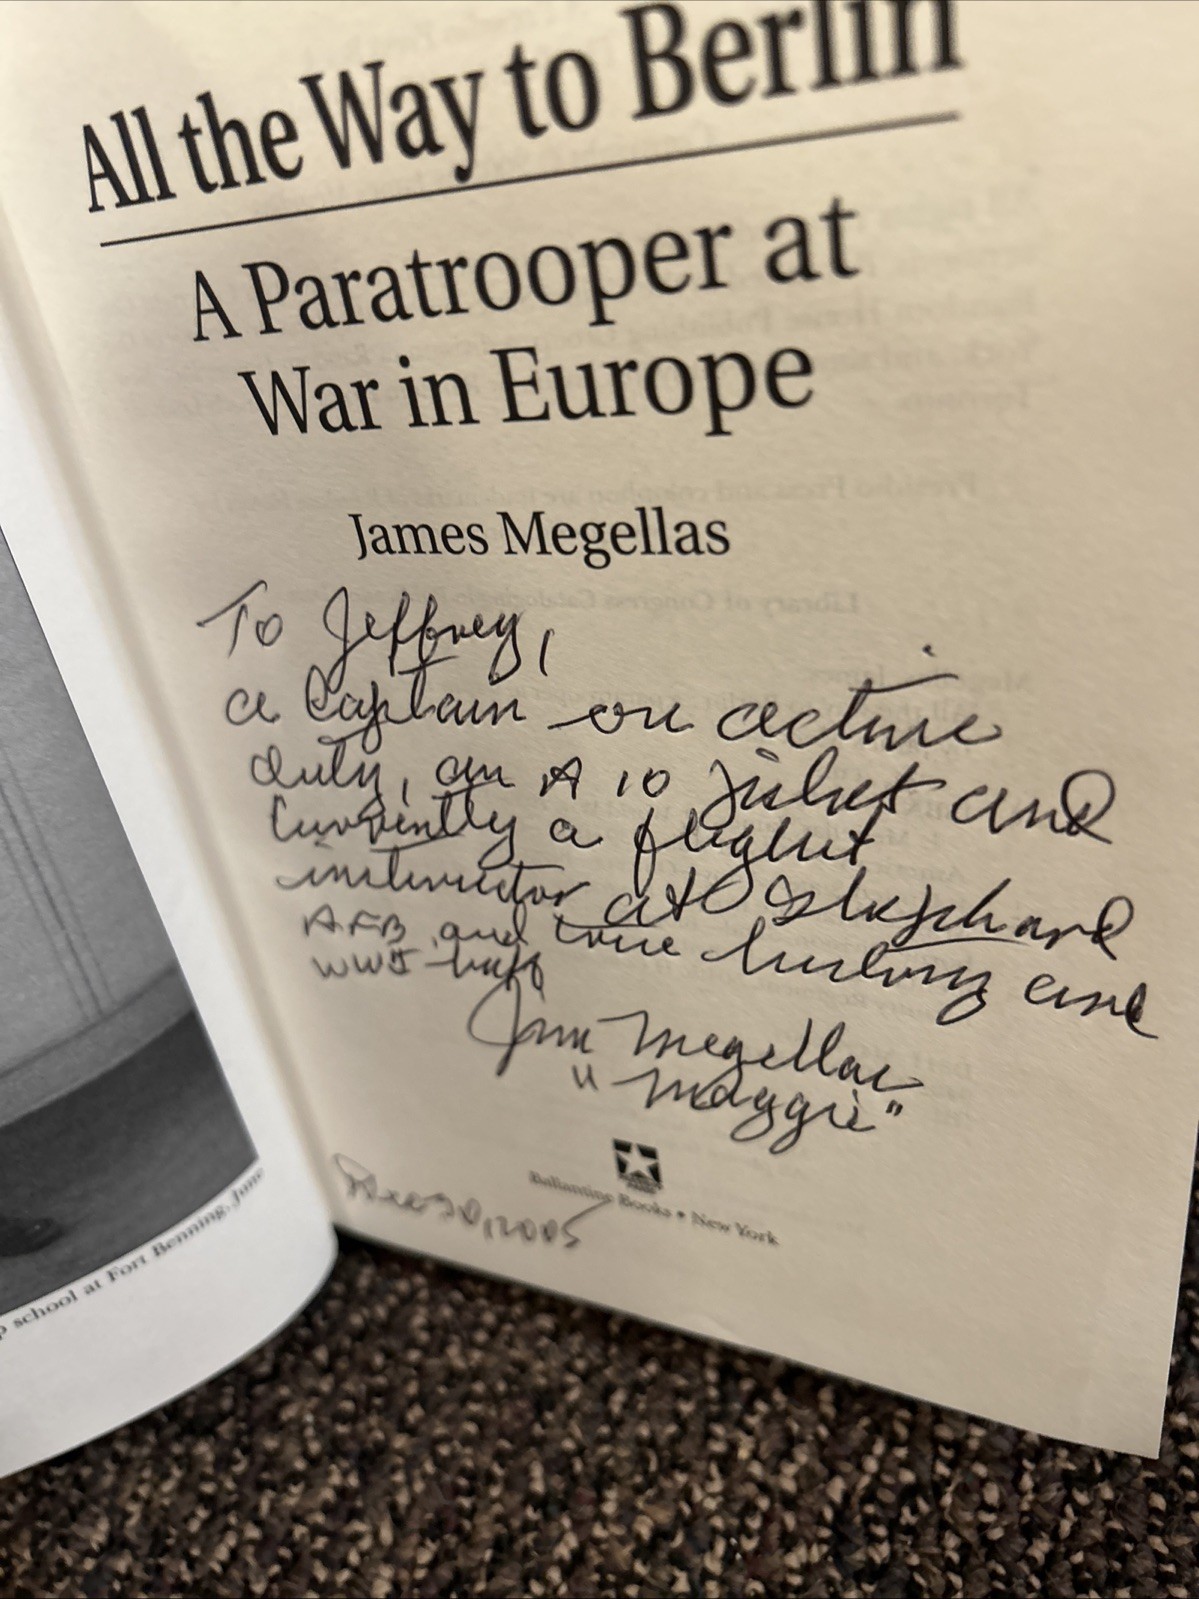 All the Way to Berlin
A Paratrooper at
War in Europe
James Megellas
To Jeffrey,
a Captain on active
duty, an A 10 pilot and
Currently a flight
instructor at Shephard
AFB and true history and
WWII buff
Jim Megellas
"Maggie"
Ballantine Books • New York
30, 2005
school at Fort Benning, June